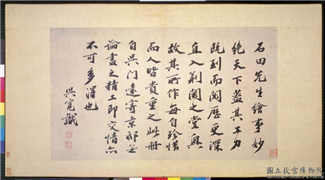 石田先生繪事妙
絕天下蓋其工力
既到而閱歷更深
直入荊關之堂奧
故其所作每自珍惜
而人皆貴重之此冊
自吳門遠寄京邸無
論畫之精工即交情亦
不可多得也
吳寬識